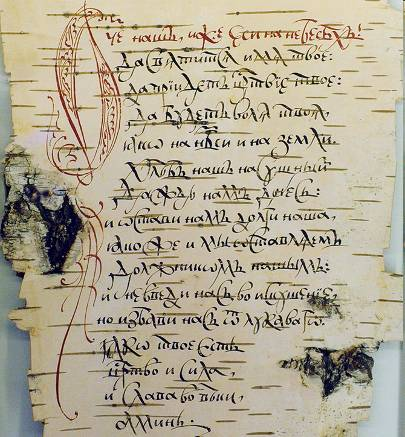 Ѻч҃е нашъ, иже еси на небесѣхъ:
да свѧтитсѧ имѧ твое:
да прїидетъ цр҃твїе твое:
да будетъ волѧ твоѧ,
ꙗко на нб҃си и на земли.
Хлѣбъ нашъ насущный
даждь намъ днесь:
и ѡстави намъ долги наша,
ꙗкоже и мы ѡставлѧемъ
должникомъ нашымъ:
и не введи насъ во искушенїе,
но избави насъ ѿ лукаваго.
ꙗко твое есть
цр҃тво и сила,
и слава во вѣки,
аминь.